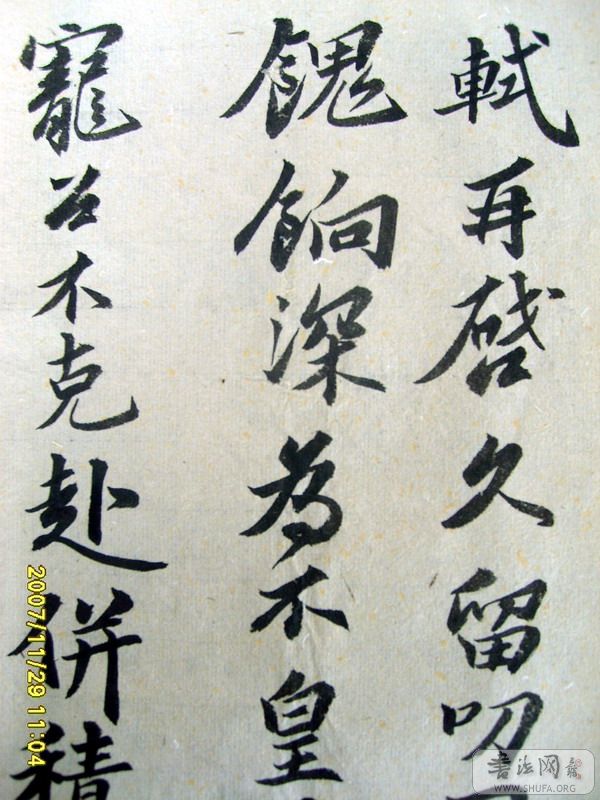 軾再啓久留叨
餽餉深為不皇
寵召不克赴併積
2007/11/29 11:04
書法网
WWW.SHUFA.ORG